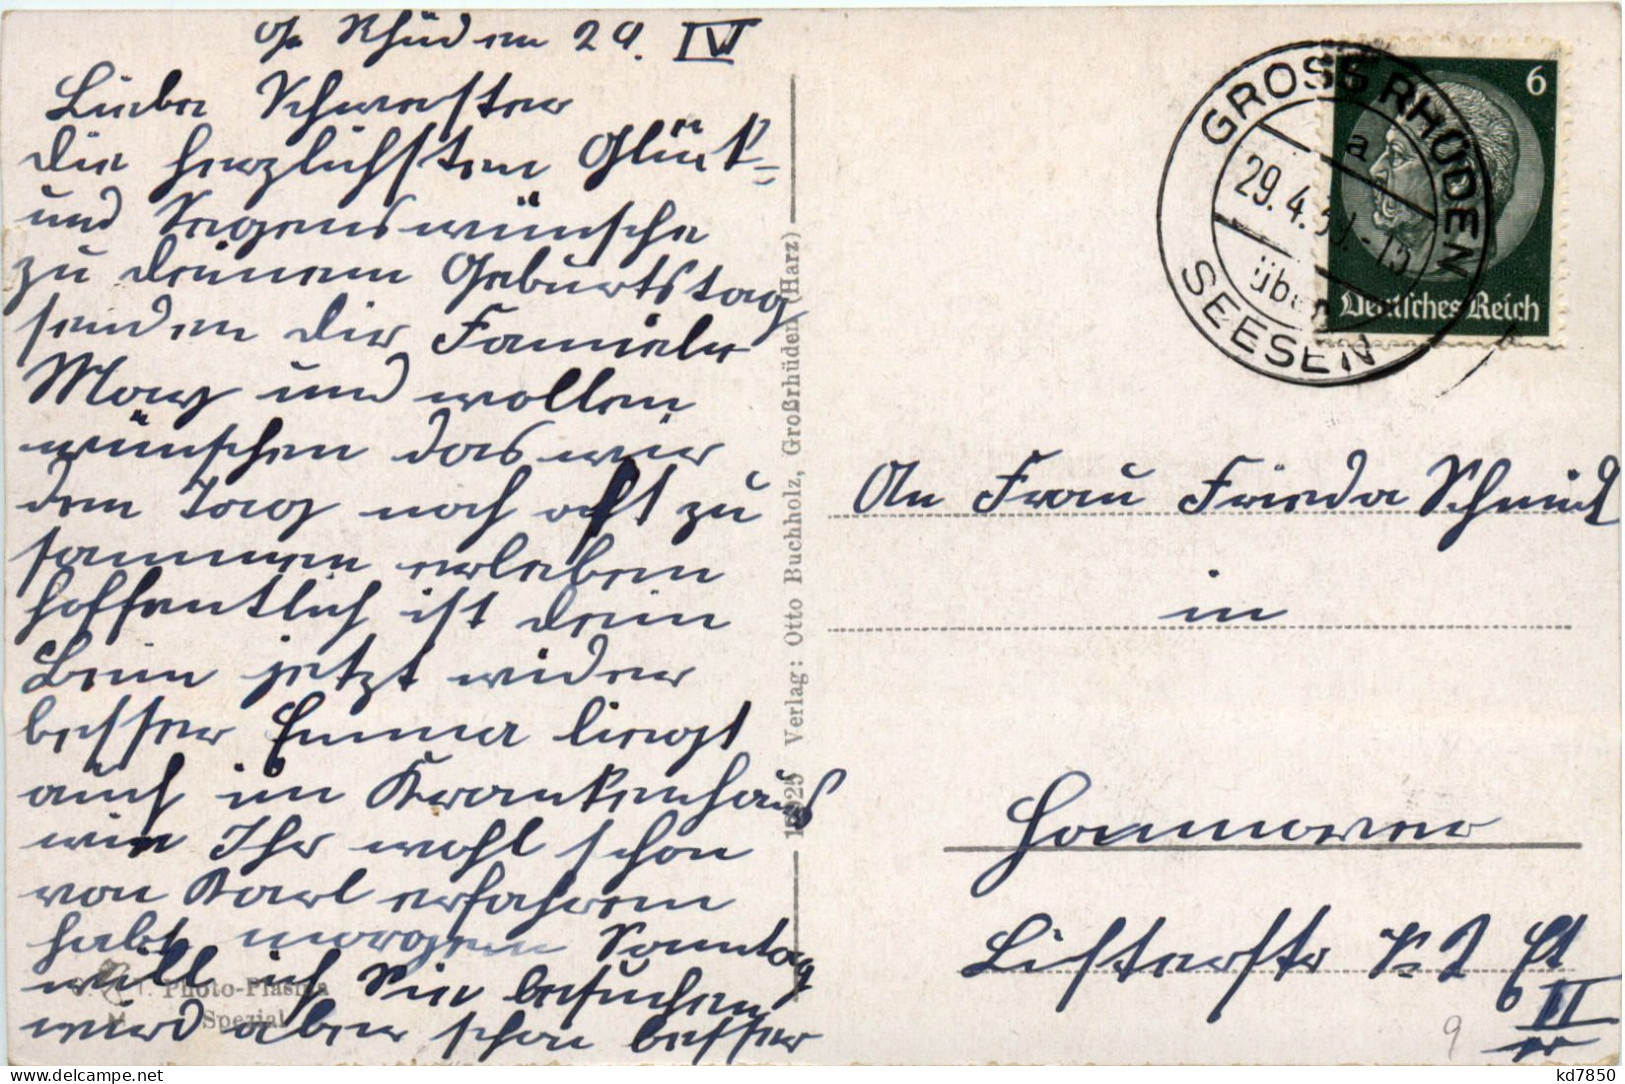 Gr. Rhüden 29. IV
Liebe Schwester
die herzlichsten Glück=
und Seegenswünsche
zu deinem Geburtstag
senden dir Famielie
und wollen
wünschen das wir
den Tag noch oft zu
sammen erleben
hoffentlich ist dein
Bein jetzt wider
besser Emma liegt
auch im Krankenhaus
wie Ihr wohl schon
von Karl erfahren
habt morgen Sonntag
will ich Sie besuchen
wird aber schon besser
Photo-Plasma
Spezial
Verlag: Otto Buchholz, Großrhüden (Harz)
GROSS RHÜDEN
a
29.4.39.-15
über
SEESEN
6
Deutsches Reich
An Frau Frieda Schmidt
in
Hannover
Listerstr
II
9
kd7850